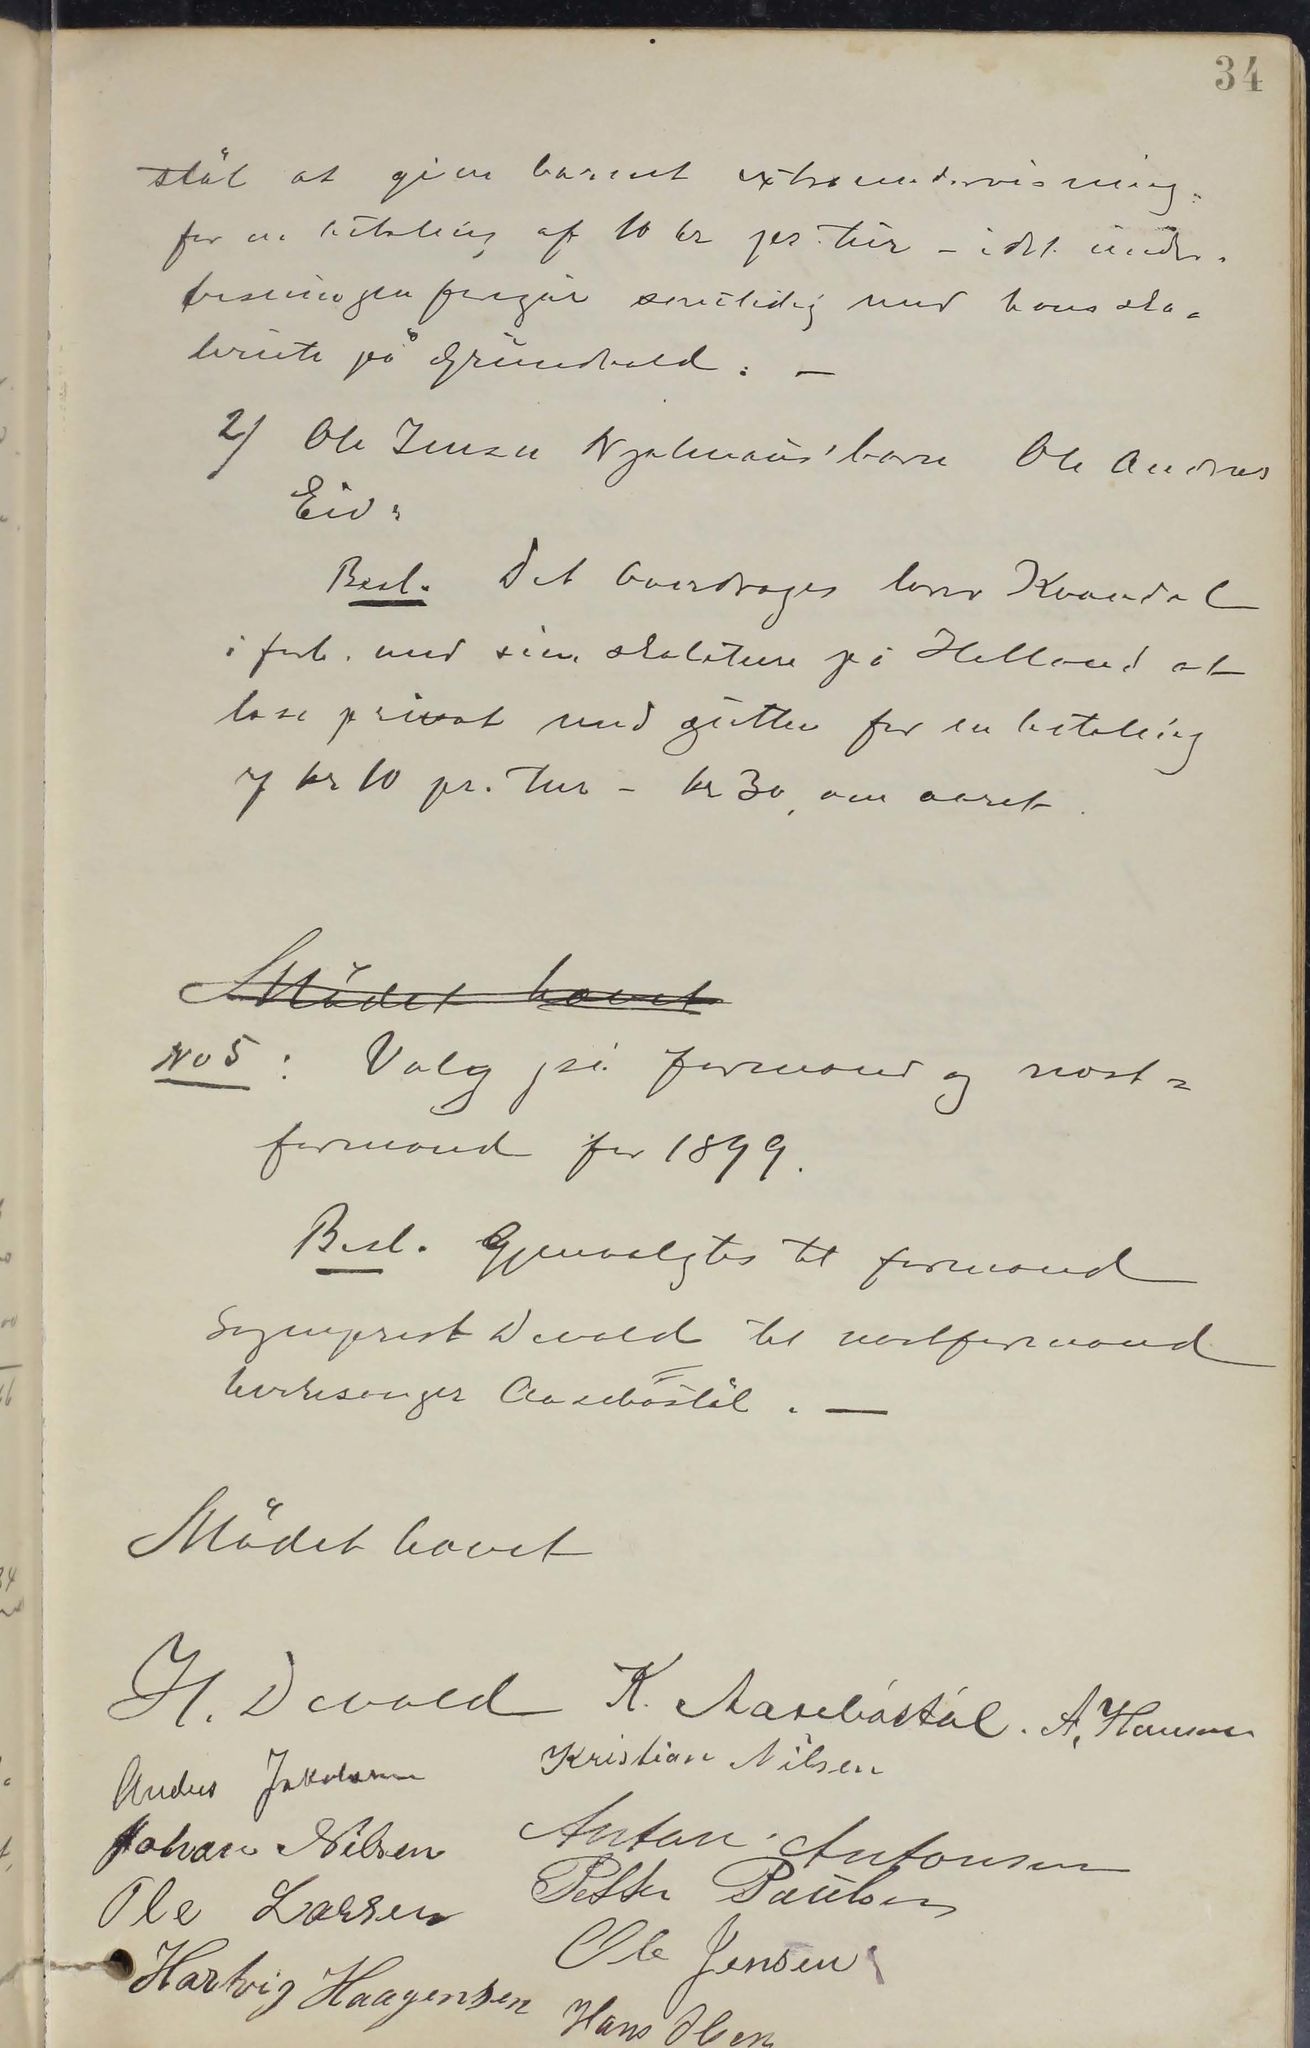 34
stål at give barnet extraundervisning
for en betaling af 10 kr pr. tur – idet under-
visningen foregår samtidig med hans sko-
lerute på Grundvold. –
2) Ole Jensen barn Ole Andreas
Eid.
Besl. Det overdrages lærer Kvandal
i forb. med sin skoletur på Helland at
læse privat med gutten for en betaling
af kr 10 pr. tur – kr 30, om aaret.
Mödet hævet
No 5: Valg på formand og næst-
formand for 1899.
Besl. Gjenvalgtes til formand
Sogneprest Devold til næstformand
kirkesanger Aasebøstøl. –
Mödet hævet
H. Devold K. Aasebøstøl. A. Hansen
Anders Jakobsen Kristian Nilsen
Johan Nilsen Anton Antonsen
Ole Larsen Petter Paulsen
Hartvig Haagensen Ole Jensen
Hans Olsen